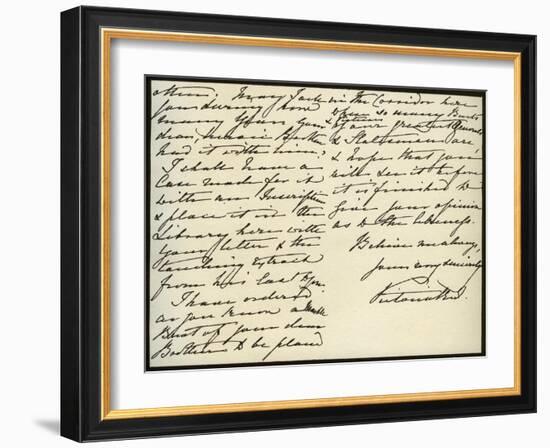 other. May I ask
you during how
many years your
dear heroic Brother
had it with him?
I shall have a
Case made for it
with an Inscription
& place it in the
Library here with
your letter & the
touching Extract
from his last to you.
I have ordered
as you know a Marble
Bust of your dear
Brother to be placed
in the Corridor here
where so many Busts
& Pictures
of our greatest Generals
& Statesmen are
& hope that you
will see it before
it is finished to
give your opinion
as to the likeness.
Believe me always,
yours very sincerely
Victoria R.I.